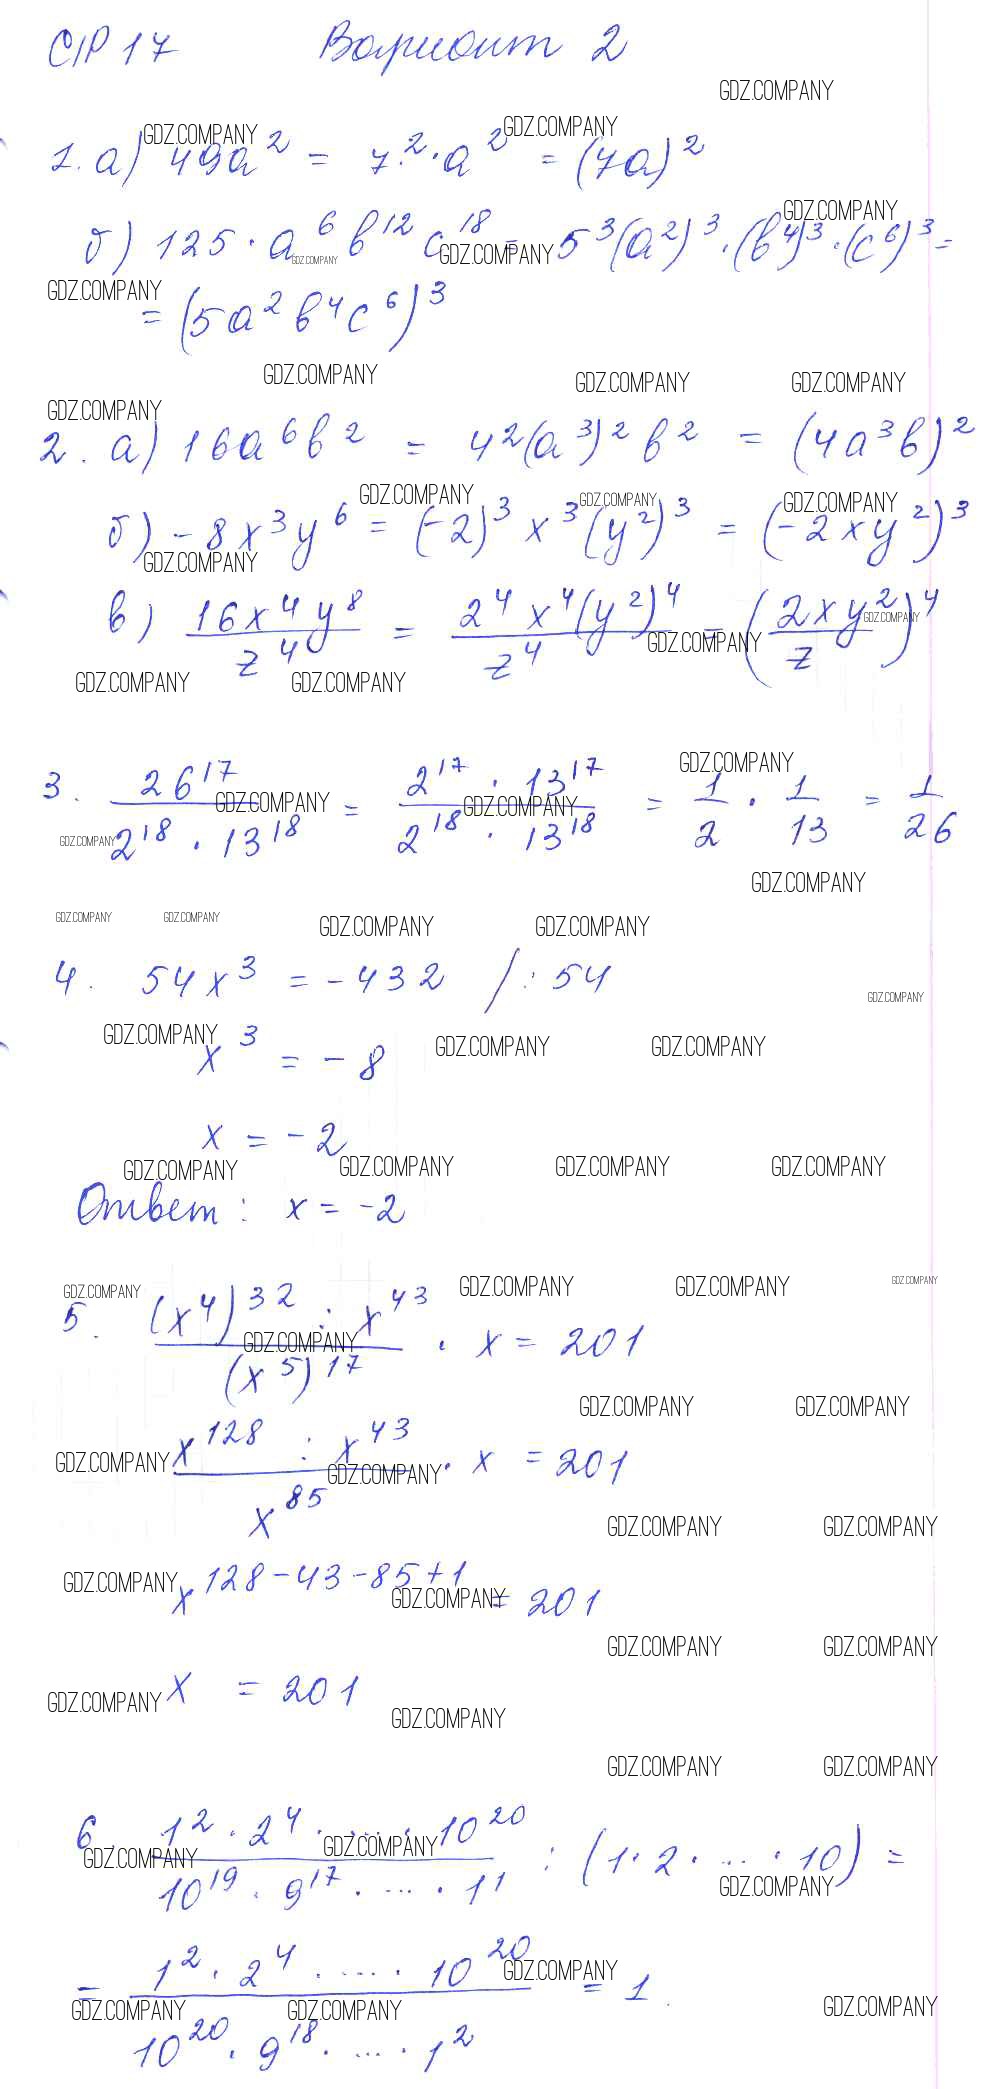 С/Р 17 Вариант 2
1. а) 49a² = 7² · a² = (7a)²
б) 125 · a⁶ b¹² c¹⁸ = 5³(a²)³ · (b⁴)³ · (c⁶)³ =
= (5a² b⁴ c⁶)³
2. а) 16a⁶b² = 4²(a³)² b² = (4a³b)²
б) -8x³y⁶ = (-2)³ x³ (y²)³ = (-2xy²)³
в) 16x⁴y⁸ / z⁴ = 2⁴ x⁴(y²)⁴ / z⁴ = (2xy² / z)⁴
3. 26¹⁷ / 2¹⁸ · 13¹⁸ = 2¹⁷ · 13¹⁷ / 2¹⁸ · 13¹⁸ = 1/2 · 1/13 = 1/26
4. 54x³ = -432 /: 54
x³ = -8
x = -2
Ответ: x = -2
5. (x⁴)³² : x⁴³ / (x⁵)¹⁷ · x = 201
x¹²⁸ : x⁴³ / x⁸⁵ · x = 201
x¹²⁸⁻⁴³⁻⁸⁵⁺¹ = 201
x = 201
6. 1² · 2⁴ · ... · 10²⁰ / 10¹⁹ · 9¹⁷ · ... · 1¹ : (1 · 2 · ... · 10) =
= 1² · 2⁴ · ... · 10²⁰ / 10²⁰ · 9¹⁸ · ... · 1² = 1.
GDZ.COMPANY